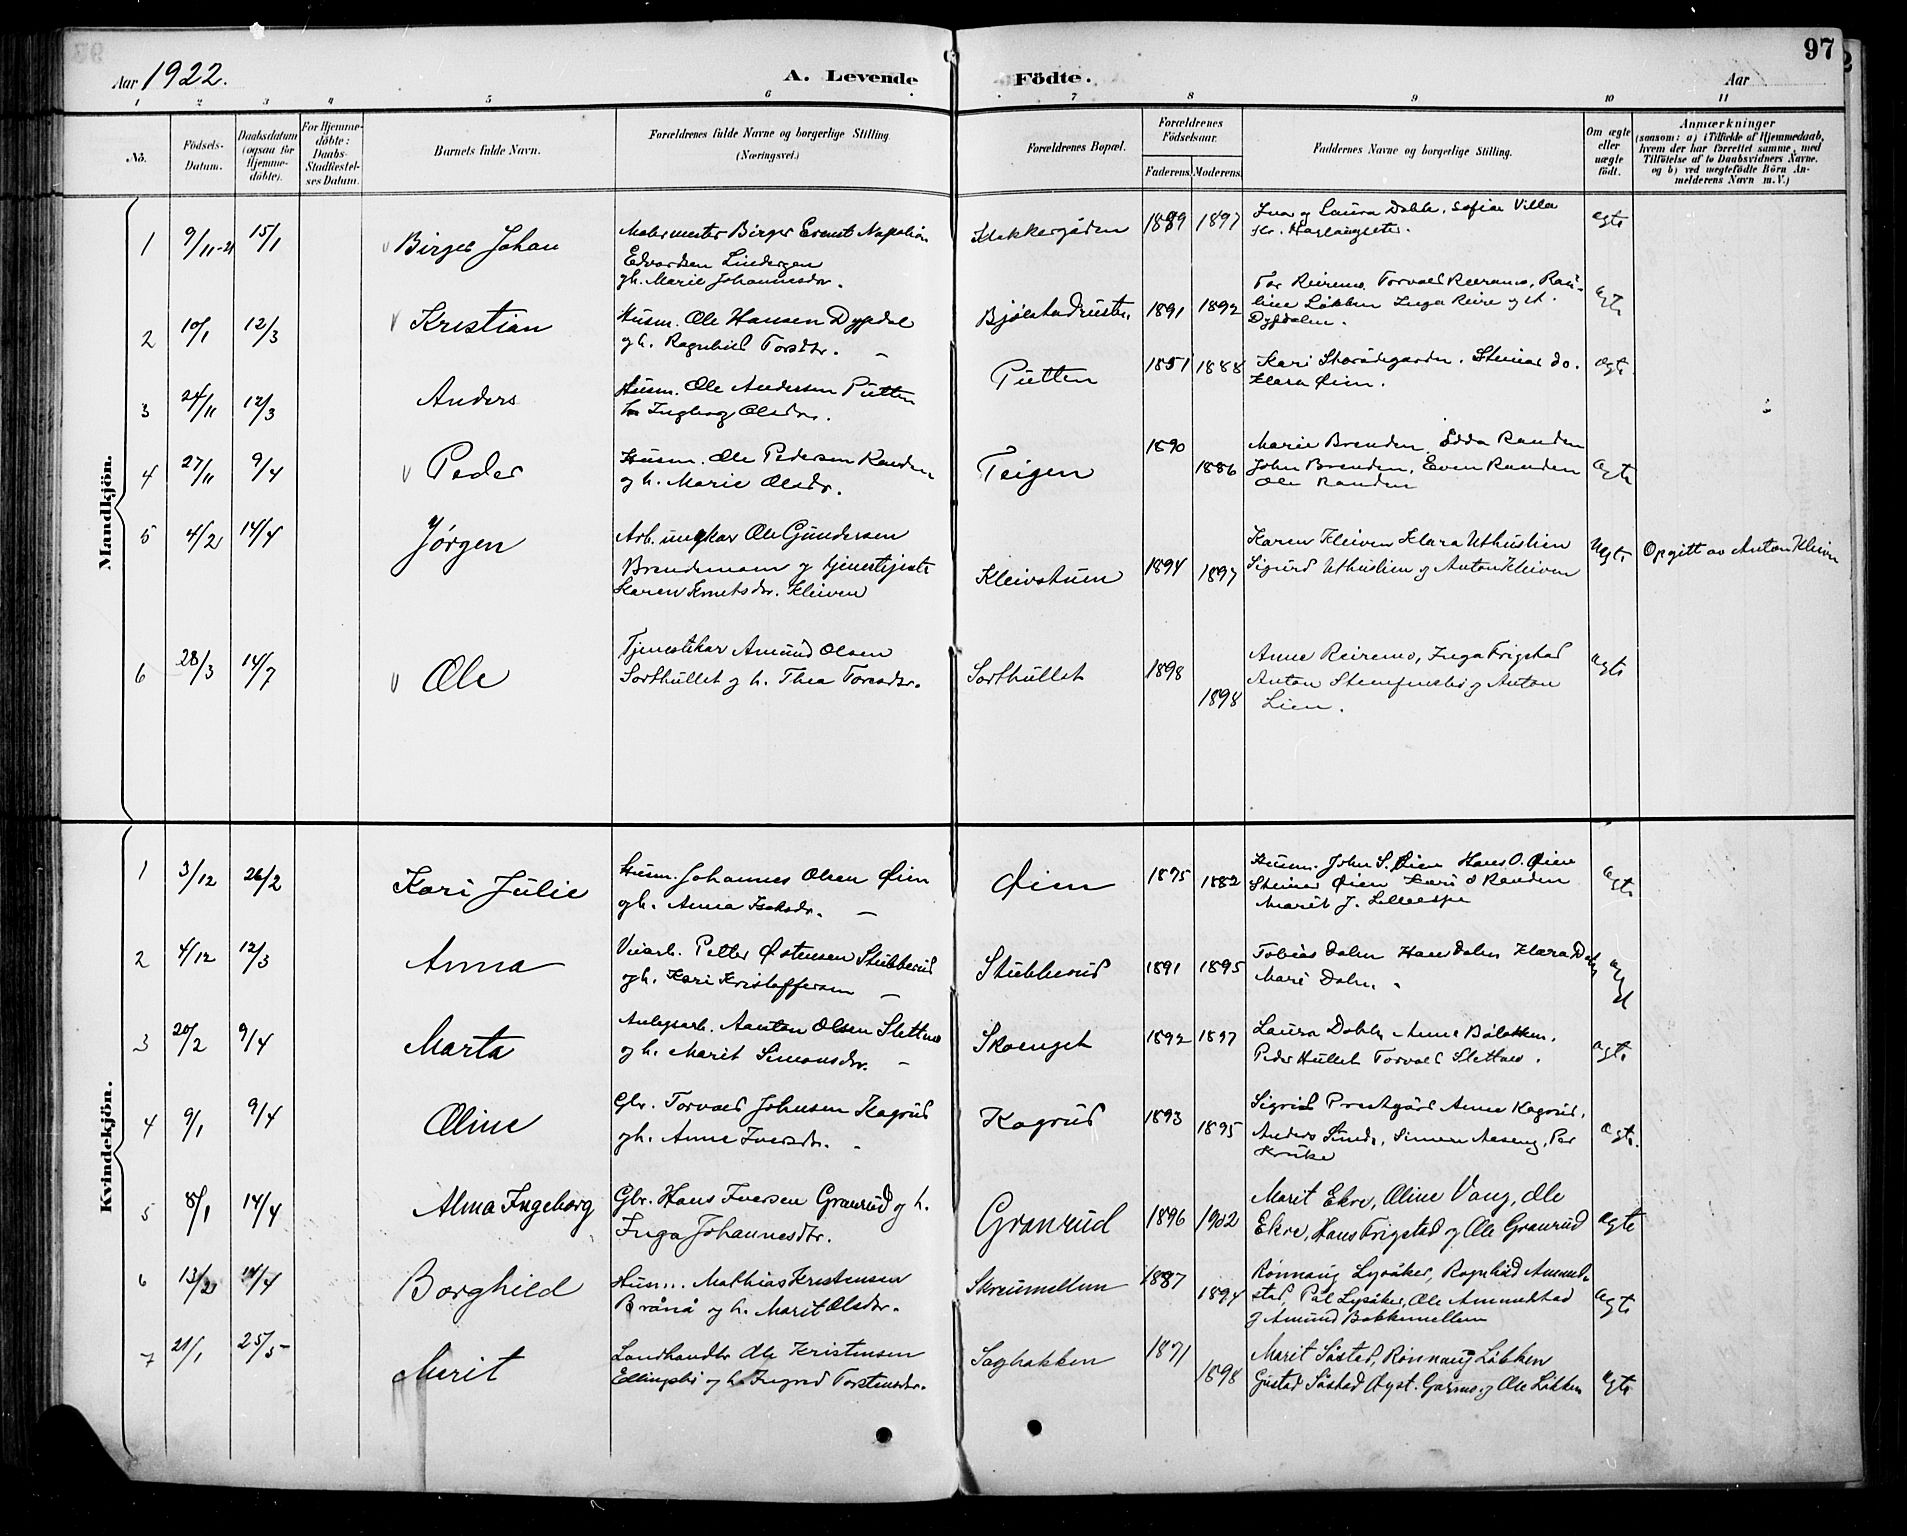 97
Aar 1922.
A. Levende Födte.
Aar
1 2 3 4 5 6 7 8 9 10 11
No.
Födsels-Datum.
Daabsdatum (ogsaa for Hjemmedöbte).
For Hjemmedöbte: Daabs-Stadfæstelses Datum.
Barnets fulde Navn.
Forældrenes fulde Navne og borgerlige Stilling. (Næringsvei.)
Forældrenes Bopæl.
Forældrenes Fødselsaar.
Faderens Moderens
Faddernes Navne og borgerlige Stilling.
Om ægte eller uægte født.
Anmærkninger
(saasom: a) i Tilfælde af Hjemmedaab, hvem der har forrettet samme, med Tilföielse af to Daabsvidners Navne, og b) ved uægtefödte Börn Anmelderens Navn m. V.)
Mandkjön.
1 9/11-21 15/1 Birger Johan
Malermester Birger Ernst Napoleon
Edvardsen Lindergen
gh. Marie Johannesdr.
Klokkergården 1889 1897
Ina og Laura Dahle, Sofie Villa
ægte
2 10/1 12/3 Kristian
Husm. Ole Hansen Dypdal
og h. Ragnhild Torsdtr.
1891 1892
Tor Reiremo Torvald Reiremo,
Løkken Inga Reire og
Dypdalen.
ægte
3 24/11 12/3 Anders
Husm. Ole Andersen Putten
Ingeborg Olsdr.
Putten 1851 1888
Kari Steinar do.
Klara Øien.
ægte
4 27/11 9/4 Peder
Husm. Ole Pedersen Randen
og h. Marie Olsdr.
Teigen 1890 1886
Marie Brenden, Edda Randen
John Brenden, Even Randen
Ole Randen
ægte
5 4/2 14/4 Jørgen
Arb. ungkar Ole Gundersen
Brendemoen og tjenestejente
Karen Knutsdr. Kleiven
Kleivstuen 1894 1897
Karen Kleiven Klara Uthuslien
Sigurd Uthuslien og Anton Kleiven
Uægte Opgitt av Anton Kleiven
6 28/3 14/7 Ole
Tjenestekar Amund Olsen
Sorthullet og h. Thea
Sorthullet 1898 1898
Anne Reiremo, Inga Frigstad
Anton og Anton
Lien.
ægte
Kvindekjön.
1 3/12 26/2 Kari Julie
Husm. Johannes Olsen Øien
og h. Anna Isaksdr.
Øien 1875 1882
Husm. John S. Øien Hans O. Øien
Steinar Øien Kari O Randen
Marit J.
ægte
2 4/12 12/3 Anna
Veiarb. Petter Østensen Stubberud
og h. Kari Kristoffersen
Stubberud 1891 1895
Tobias Dalen Hans Dalen Klara Dalen
Mari Dalen.
ægte
3 20/2 9/4 Marta
Anlegsarb. Aanton Olsen Slettmo
og h. Marit Simonsdr.
Skoenget 1892 1897
Laura Dahle Anne Bøløkken.
Peder Hullet Torvald Slettmo.
ægte
4 9/1 9/4 Oline
Gbr. Torvald Johnsen Kagrud
og h. Anne Iversdr.
Kagrud 1893 1895
Sigrid Prestgård Anne Kagrud,
Anders Sunde, Simen Aaseng, Per
Kruke
ægte.
5 8/1 14/4 Alma Ingeborg
Gbr. Hans Iversen Granrud og h.
Inga Johannesdtr.
Granrud 1896 1902
Marit Ekre, Oline Vang, Ole
Ekre, Hans Frigstad og Ole Granrud
ægte
6 13/2 14/4 Borghild
Husm. Mathias Kristensen
Brånå og h. Marit Olsdr.
Skreumellum 1887 1894
Rønnaug Lysåker, Ragnhild Ammelstad, Pål Lysåker, Ole Ammelstad
og Amund Bakkemellum
ægte
7 21/1 25/5 Marit
Landhandler Ole Kristensen
Ellingsbø og h. Ingrid Torstensdtr.
Saghakken 1871 1898
Marit Såstad, Rønnaug Løkken
Gustad Såstad Øyst. Garmo og Ole Løkken
ægte